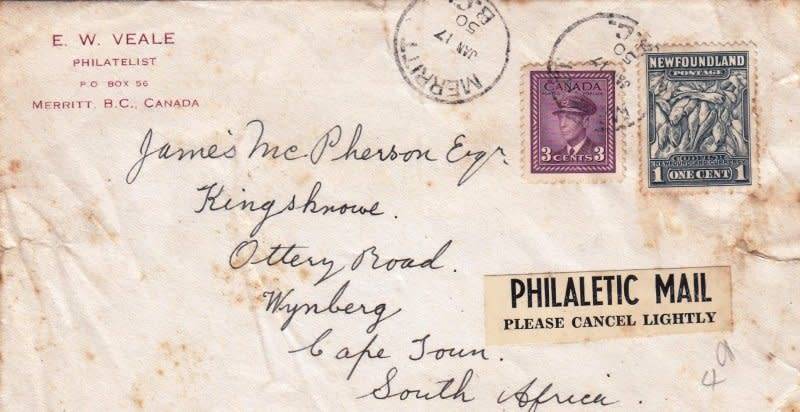 E. W. VEALE
PHILATELIST
P.O. BOX 56
MERRITT, B.C., CANADA
MERRITT
JAN 17
50
B.C.
CANADA
3 CENTS 3
NEWFOUNDLAND
POSTAGE
CODFISH
NEWFOUNDLAND'S CURRENCY
1 ONE CENT 1
James McPherson Esqr.
Kingsknowe.
Ottery Road.
Wynberg
Cape Town.
South Africa.
PHILALETIC MAIL
PLEASE CANCEL LIGHTLY